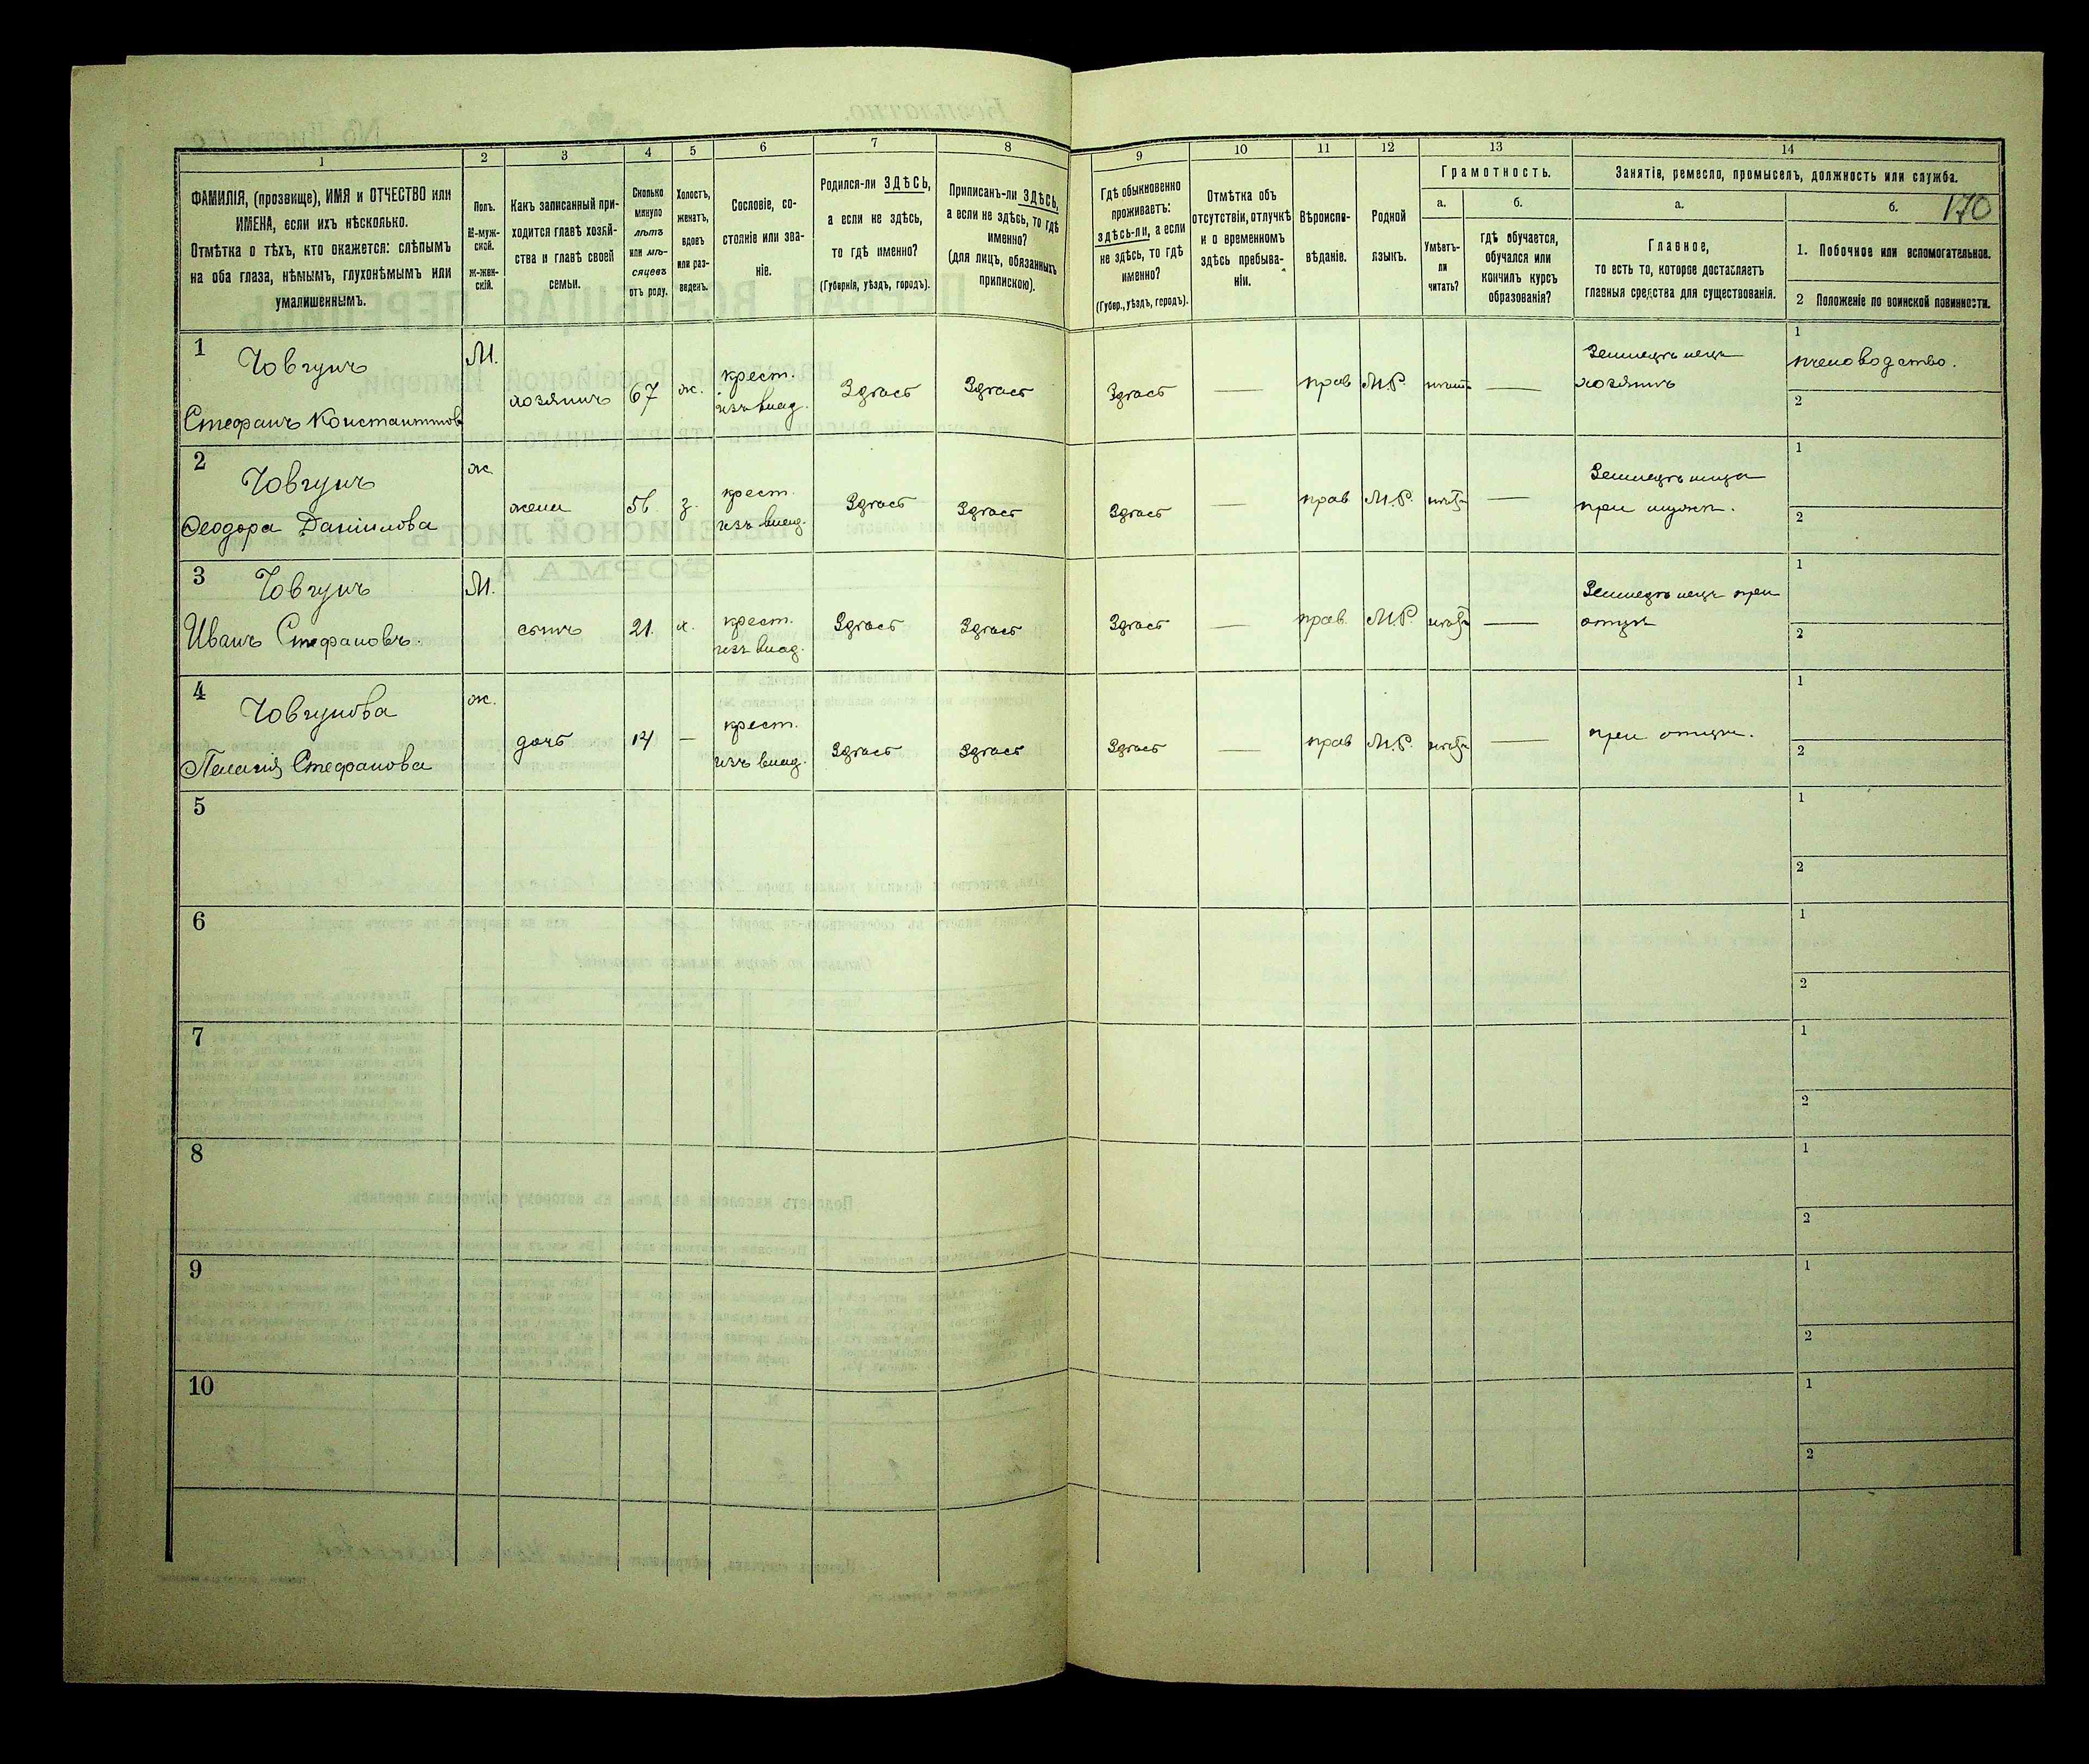 170
1
2
3
4
5
6
7
8
9
10
11
12
13
14
ФАМИЛІЯ, (прозвище), ИМЯ и ОТЧЕСТВО или
ИМЕНА, если ихъ нѣсколько.
Отмѣтка о тѣхъ, кто окажется: слѣпымъ
на оба глаза, нѣмымъ, глухонѣмымъ или
умалишеннымъ.
Полъ.
М-муж-
ской.
Ж-жен-
скій.
Какъ записанный при-
ходится главѣ хозяй-
ства и главѣ своей
семьи.
Сколько
минуло
лѣтъ
или мѣ-
сяцевъ
отъ роду.
Холостъ,
женатъ,
вдовъ
или раз-
веденъ.
Сословіе, со-
стояніе или зва-
ніе.
Родился-ли ЗДѢСЬ,
а если не здѣсь,
то гдѣ именно?
(Губернія, уѣздъ, городъ).
Приписанъ-ли ЗДѢСЬ,
а если не здѣсь, то гдѣ
именно?
(для лицъ, обязанныхъ
припискою).
Гдѣ обыкновенно
проживаетъ:
здѣсь-ли, а если
не здѣсь, то гдѣ
именно?
(Губер., уѣздъ, городъ).
Отмѣтка объ
отсутствіи, отлучкѣ
и о временномъ
здѣсь пребыва-
ніи.
Вѣроиспо-
вѣданіе.
Родной
языкъ.
Грамотность.
а.
Умѣетъ-
ли
читать?
б.
гдѣ обучается,
обучался или
кончилъ курсъ
образованія?
Занятіе, ремесло, промыселъ, должность или служба.
а.
Главное,
то есть то, которое доставляетъ
главныя средства для существованія.
б.
1. Побочное или вспомогательное.
2 Положеніе по воинской повинности.
1
Човгунъ
Стефанъ Константинов
М.
хозяинъ
67
ж.
крест.
изъ влад.
Здѣсь
Здѣсь
Здѣсь
—
прав
М.Р.
нѣтъ
—
Земледѣлецъ
хозяинъ
1
пчеловодство.
2
2
Човгунъ
Ѳеодора Даніилова
ж
жена
56.
з.
крест.
изъ влад.
Здѣсь
Здѣсь
Здѣсь
—
прав
М.Р.
нѣтъ
—
Земледѣлица
при мужѣ.
1
2
3
Човгунъ
Иванъ Стефановъ.
М.
сынъ
21.
х.
крест.
изъ влад.
Здѣсь
Здѣсь
Здѣсь
—
прав.
М.Р
нѣтъ
—
Земледѣлецъ при
отцѣ
1
2
4
Човгунова
Пелагія Стефанова
ж.
дочь
14
—
крест.
изъ влад.
Здѣсь
Здѣсь
Здѣсь
—
прав
М.Р.
нѣтъ
—
при отцѣ.
1
2
5
1
2
6
1
2
7
1
2
8
1
2
9
1
2
10
1
2